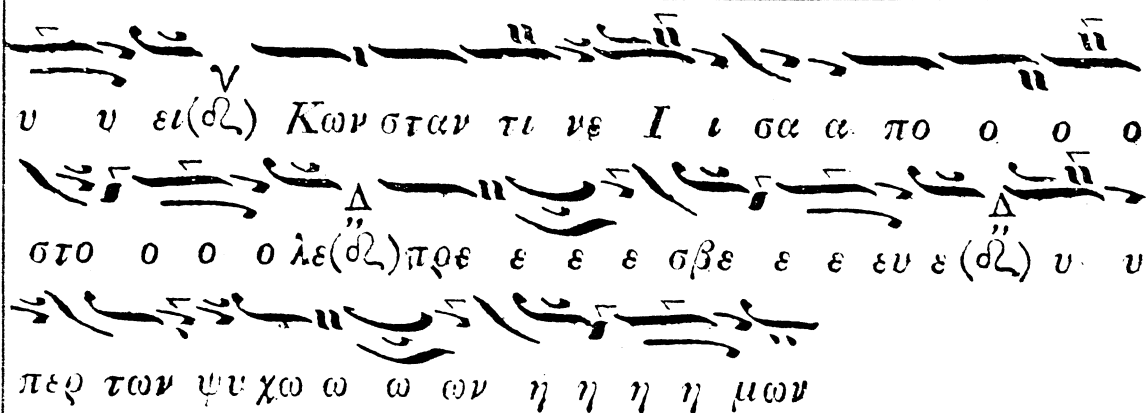 υ υ ει(δι) Κων σταν τι νε Ι ι σα α πο ο ο ο
στο ο ο ο λε(δι) πρε ε ε ε σβε ε ε ευ ε(δι) υ υ
περ των ψυ χω ω ω ων η η η η μων